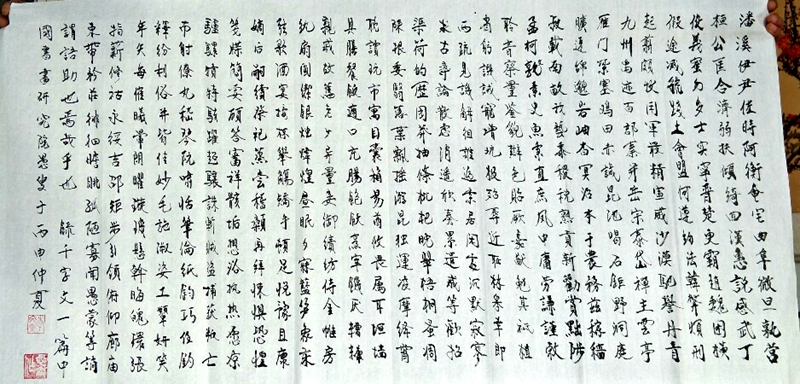 潘溪伊尹佐時阿衡奄宅曲阜微旦孰營
桓公匡合濟弱扶傾綺回漢惠說感武丁
俊義密勿多士寔寧晉楚更霸趙魏困橫
假途滅虢踐土會盟何遵約法韓弊煩刑
起翦頗牧用軍最精宣威沙漠馳譽丹青
九州禹迹百郡秦并岳宗泰岱禪主雲亭
雁門紫塞鷄田赤誠昆池碣石鉅野洞庭
曠遠綿邈岩岫杳冥治本于農務茲稼穡
俶載南畝我藝黍稷稅熟貢新勸賞黜陟
孟軻敦素史魚秉直庶幾中庸勞謙謹敕
聆音察理鑒貌辨色貽厥嘉猷勉其祗植
省躬譏誡寵增抗極殆辱近恥林皋幸即
兩疏見機解組誰逼索居閑處沉默寂寥
求古尋論散慮逍遙欣奏累遣戚等歡招
渠荷的歷園莽抽條枇杷晚翠梧桐凋
陳根委翳落葉飄搖游昆獨運凌摩絳霄
耽讀玩市寓目囊箱易輶攸畏屬耳垣墻
具膳餐飯適口充腸飽飫烹宰饑厭糟糠
親戚故舊老少異糧妾御績紡侍巾帷房
紈扇圓潔銀燭煒煌晝眠夕寐藍笋象床
弦歌酒宴接杯舉觴矯手頓足悅豫且康
嫡後嗣續祭祀蒸嘗稽顙再拜悚懼恐惶
箋牒簡要顧答審詳骸垢想浴執熱願涼
驢騾犢特駭躍超驤誅斬賊盜捕獲叛亡
布射僚丸嵇琴阮嘯恬筆倫紙鈞巧任釣
釋紛利俗并皆佳妙毛施淑姿工顰妍笑
年矢每催曦暉朗曜璇璣懸斡晦魄環照
指薪修祜永綏吉劭矩步引領俯仰廊廟
束帶矜莊徘徊瞻眺孤陋寡聞愚蒙等誚
謂語助也焉哉乎也 錄千字文一篇中
國書畫研究院 于丙申仲夏